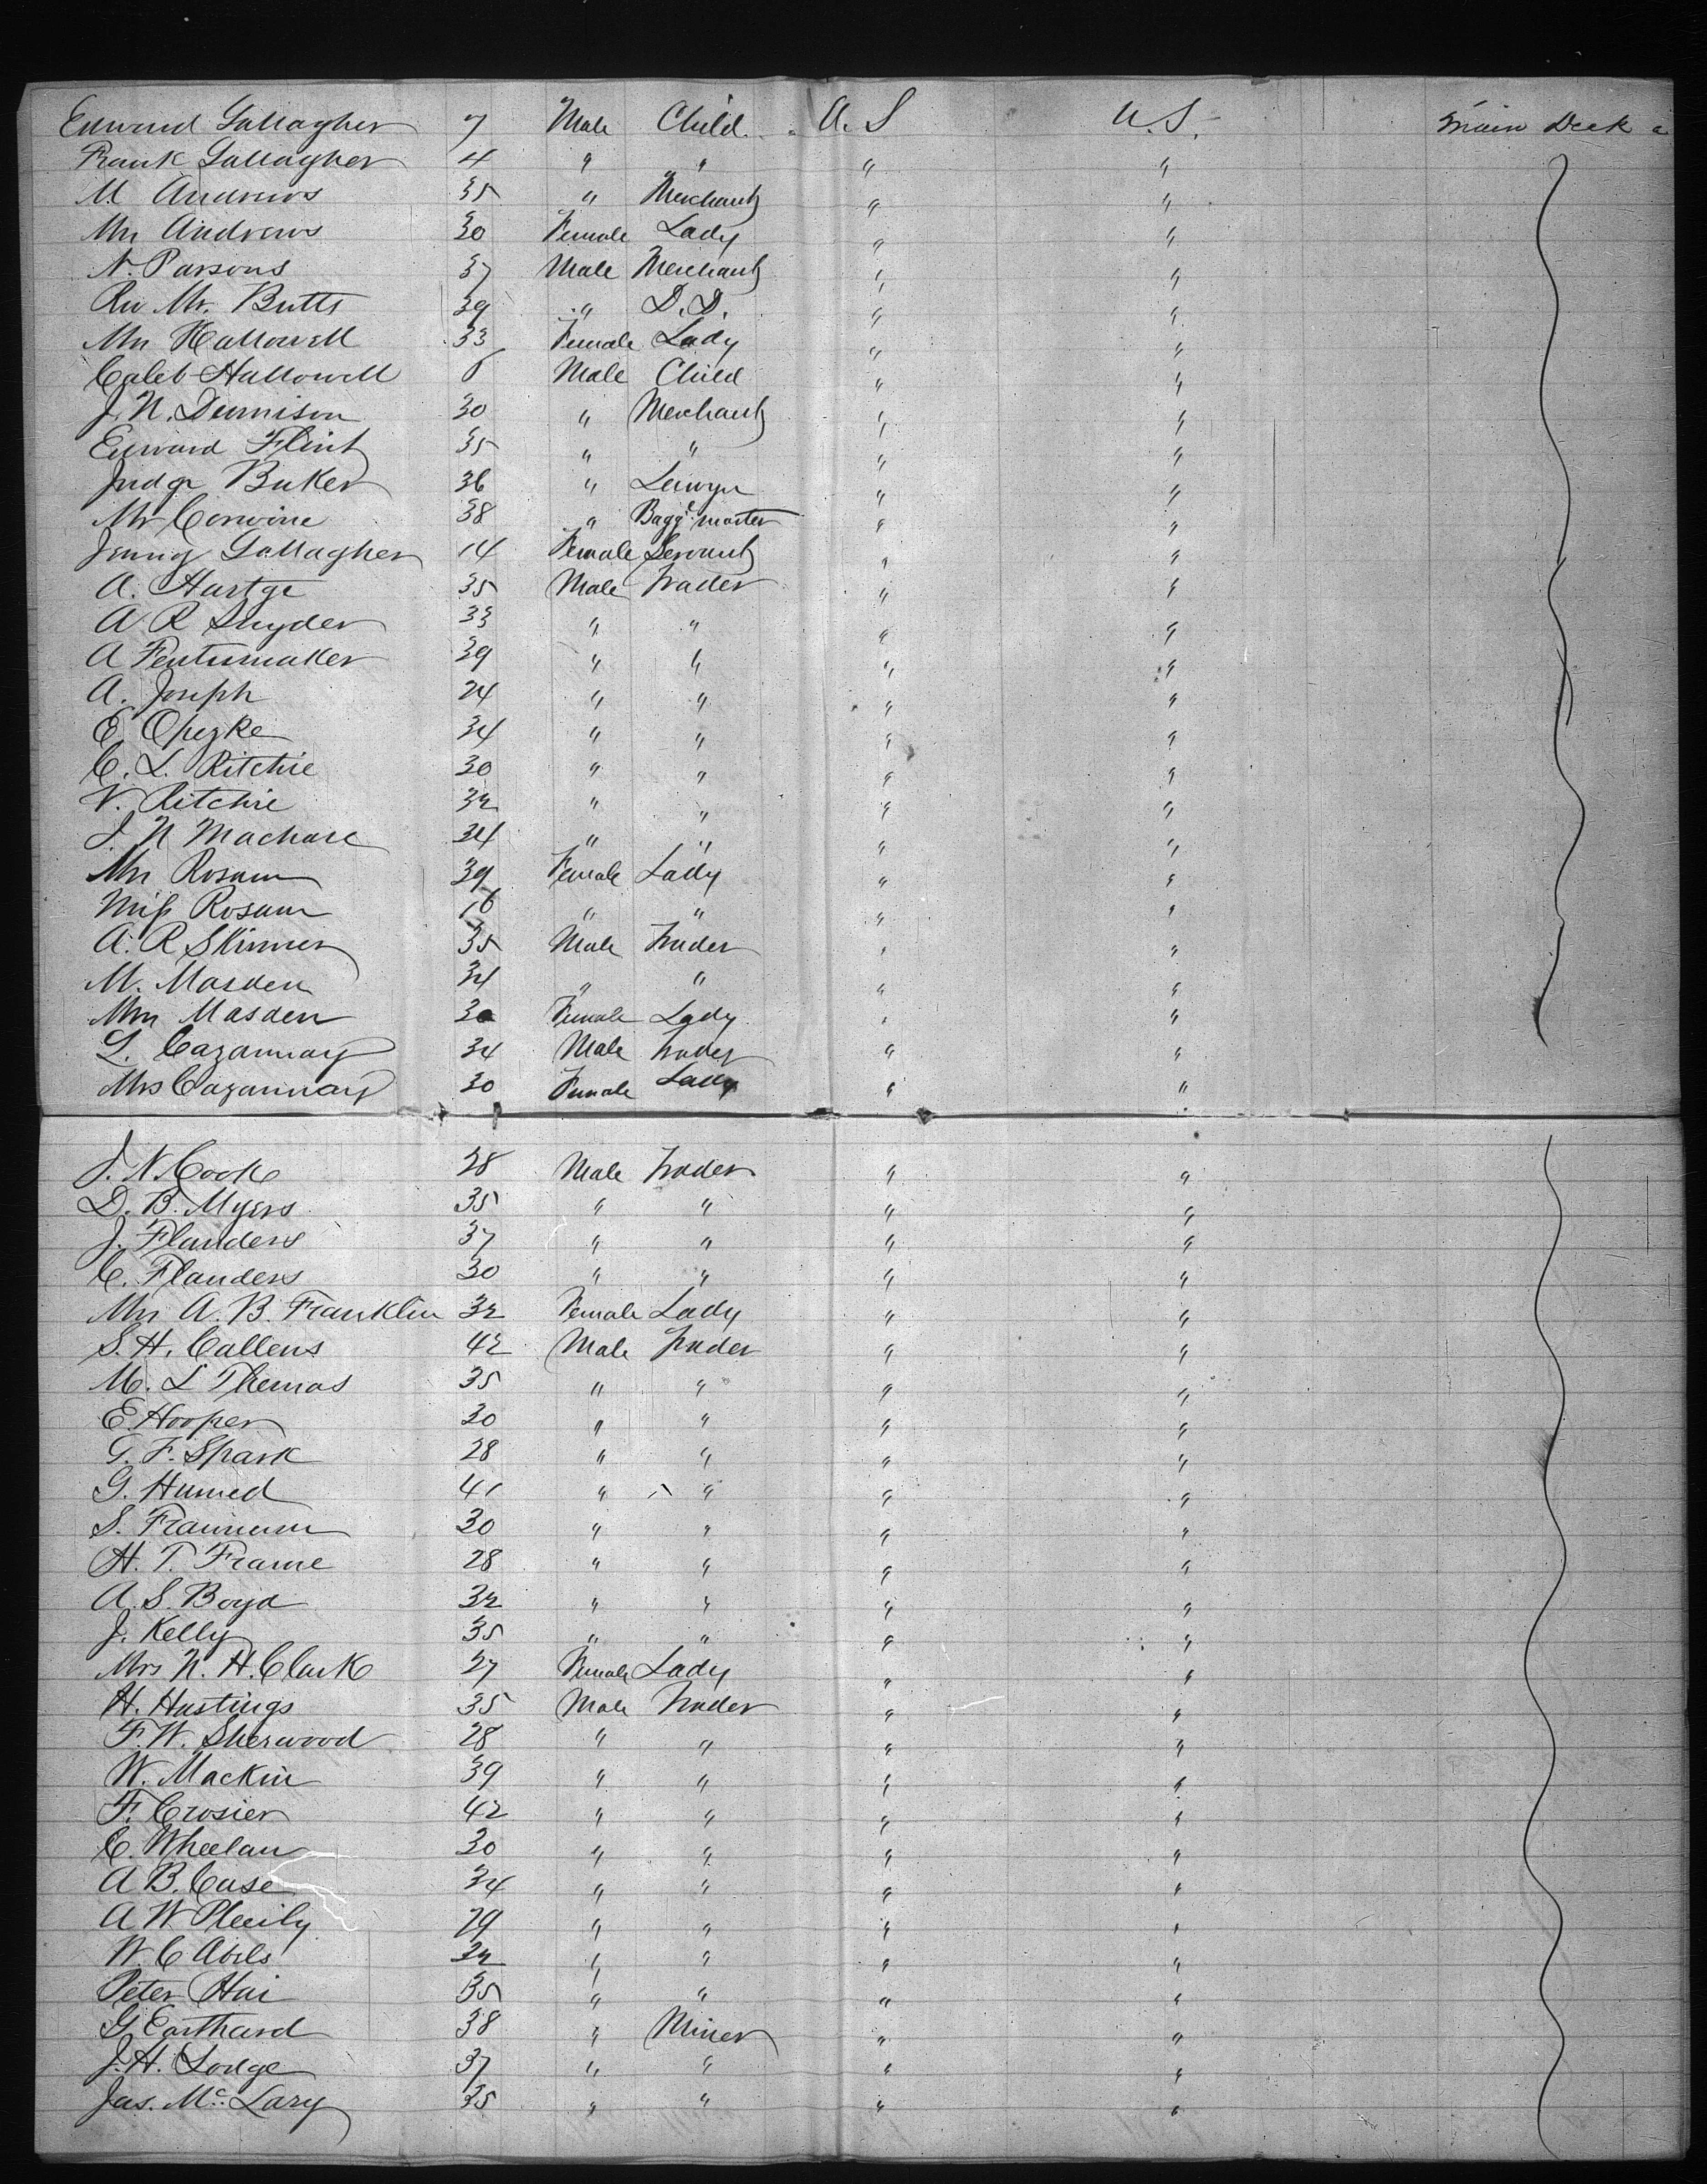 Edward Gallagher 7 Male Child U.S U.S. Main Deck
Frank Gallagher 4 " " " "
M. Andrews 35 " Merchant " "
Mrs Andrews 30 Female Lady " "
N. Parsons 37 Male Merchant " "
Rev Mr. Butts 39 " D.D. " "
Mrs Hallowell 33 Female Lady " "
Caleb Hallowell 6 Male Child " "
J. N. Dennison 30 " Merchant " "
Edward Flint 35 " " " "
Judge Baker 36 " Lawyer " "
Mr Corwine 38 " Bagge master " "
Jenny Gallagher 14 Female Servant " "
A. Hartge 35 Male Trader " "
A R Snyder 33 " " " "
A 39 " " " "
A. Joseph 24 " " " "
E. Opyke 34 " " " "
C. L. Ritchie 30 " " " "
V. Ritchie 32 " " " "
J. N 34 " " " "
Mrs Rosam 39 Female Lady " "
Miss Rosam 16 " " " "
A. R Skinner 35 Male Trader " "
M. Masden 34 " " " "
Mrs Masden 30 Female Lady " "
L. Cazannay 34 Male Trader " "
Mrs Cazannay 30 Female Lady " "
J. N. Cook 28 Male Trader " "
D. B. Myers 35 " " " "
J. Flanders 37 " " " "
C. Flanders 30 " " " "
Mrs A. B. Franklin 32 Female Lady " "
S. H. Callens 42 Male Trader " "
M. L Thomas 35 " " " "
E. Hooper 30 " " " "
G. F. Spark 28 " " " "
G. Humed 41 " " " "
S. 30 " " " "
H. T. Frame 28 " " " "
A. S. Boyd 32 " " " "
J. Kelly 35 " " " "
Mrs N. H. Clark 27 Female Lady " "
H. Hastings 35 Male Trader " "
F. W. Sherwood 28 " " " "
W. Mackin 39 " " " "
F. Crosier 42 " " " "
C. Wheelan 30 " " " "
A B. Case 34 " " " "
A W 29 " " " "
W. C Abels 32 " " " "
Peter Hai 35 " " " "
G Earthard 38 " Miner " "
J. H. Lodge 37 " " " "
Jas. Mc. Lary 35 " " " "